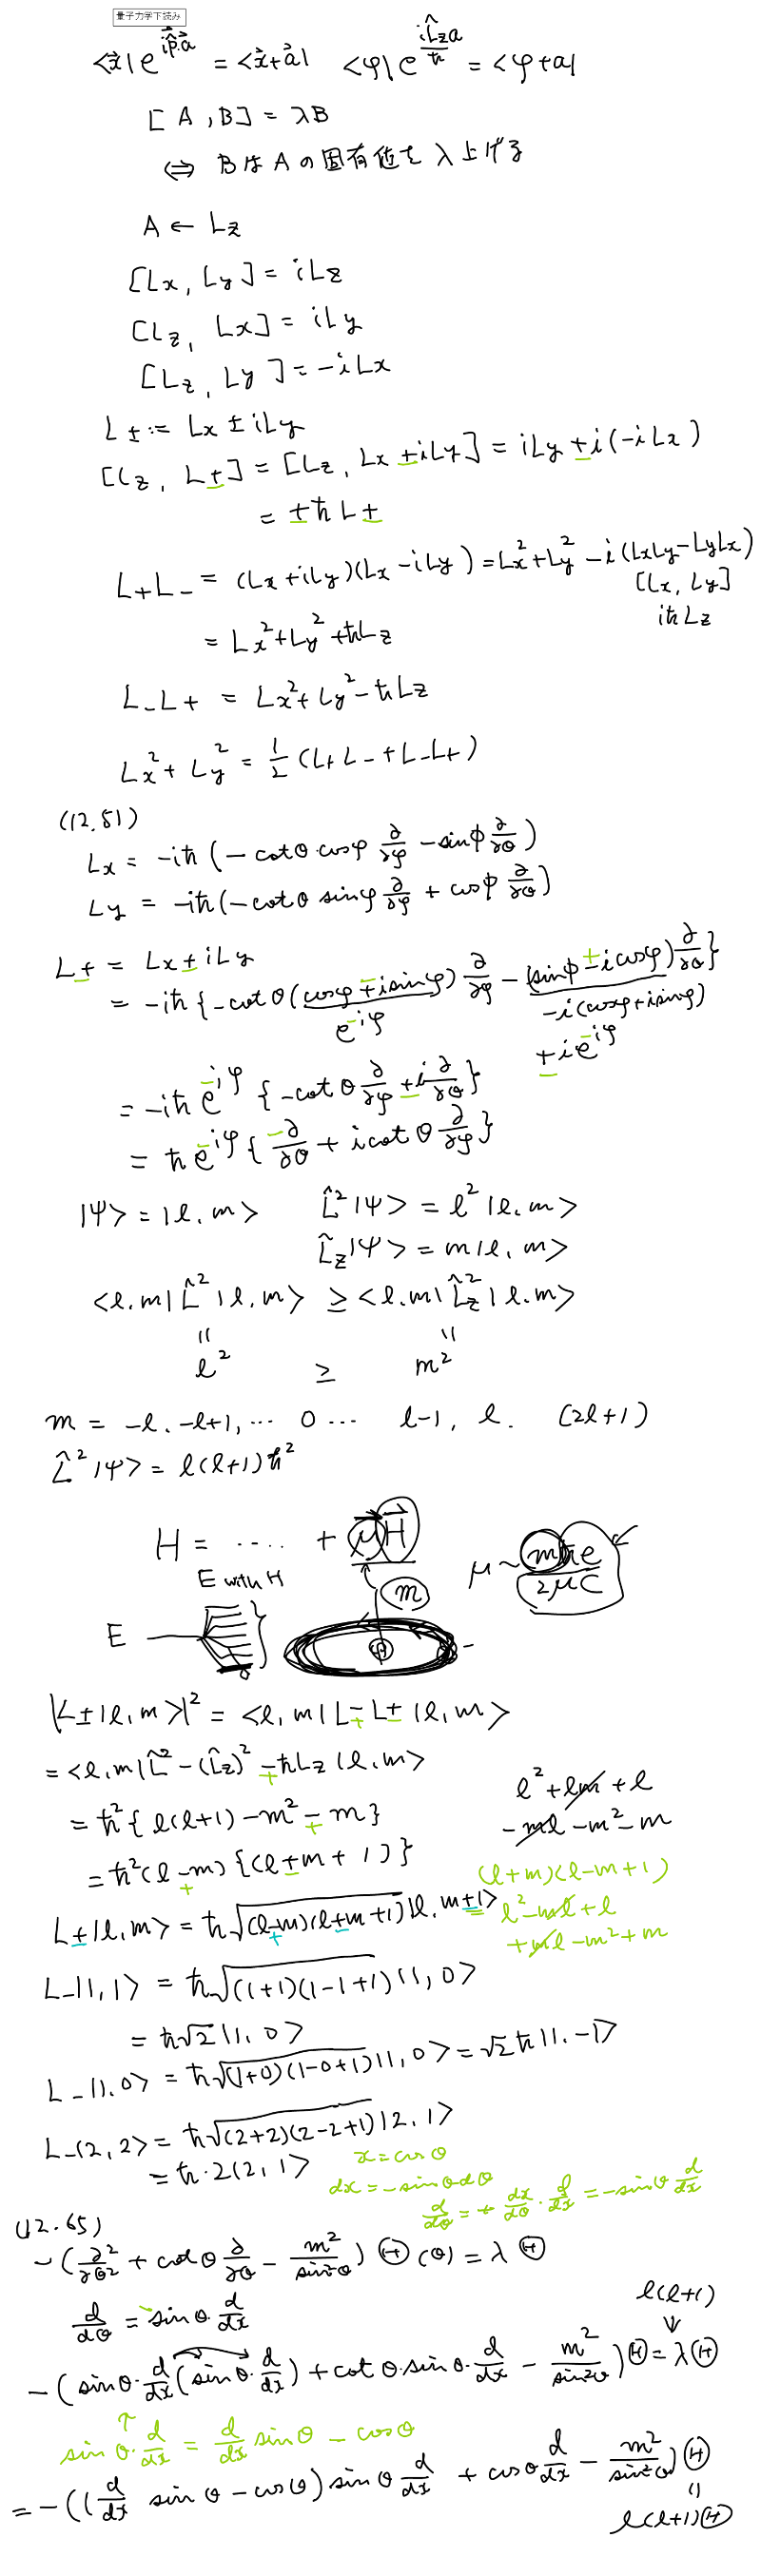 量子力学下読み
<x⃗|e^{ip̂⃗·a⃗} = <x⃗+a⃗|  <φ|e^{iL̂za/ħ} = <φ+a|
[A, B] = λB
⇔ BはAの固有値をλ上げる
A ← Lz
[Lx, Ly] = iLz
[Lz, Lx] = iLy
[Lz, Ly] = -iLx
L± := Lx ± iLy
[Lz, L±] = [Lz, Lx ± iLy] = iLy ± i(-iLx)
= ±ħL±
L+L- = (Lx+iLy)(Lx-iLy) = Lx²+Ly² - i(LxLy-LyLx)
[Lx, Ly]
iħLz
= Lx²+Ly²+ħLz
L-L+ = Lx²+Ly²-ħLz
Lx²+Ly² = 1/2 (L+L-+L-L+)
(12.51)
Lx = -iħ(-cotθ cosφ ∂/∂φ - sinφ ∂/∂θ)
Ly = -iħ(-cotθ sinφ ∂/∂φ + cosφ ∂/∂θ)
L± = Lx ± iLy
= -iħ{-cotθ(cosφ ∓ isinφ) ∂/∂φ - (sinφ ± icosφ) ∂/∂θ}
e^{-iφ}  -i(cosφ+isinφ)
±ie^{-iφ}
= -iħ e^{-iφ} {-cotθ ∂/∂φ ± i ∂/∂θ}
= ħ e^{-iφ} {-∂/∂θ + icotθ ∂/∂φ}
|Ψ> = |l, m>  L̂²|Ψ> = l²|l, m>
L̂z|Ψ> = m|l, m>
<l, m|L̂²|l, m> ≥ <l, m|L̂z²|l, m>
||  ||
l² ≥ m²
m = -l, -l+1, … 0 … l-1, l. (2l+1)
L̂²|Ψ> = l(l+1)ħ²
H = ‥‥ + μ⃗H⃗  μ ~ mħe/2μC
E with H
m
E
⊕ -
|L±|l, m>|² = <l, m|L∓L±|l, m>
= <l, m|L̂² - (L̂z)² ∓ ħLz|l, m>
= ħ²{l(l+1) - m² ∓ m}
= ħ²(l ∓ m){(l ± m + 1)}
l² + lm + l
- ml - m² - m
(l+m)(l-m+1)
= l² - ml + l
+ ml - m² + m
L±|l, m> = ħ√(l∓m)(l±m+1) |l, m±1>
L-|1, 1> = ħ√(1+1)(1-1+1) |1, 0>
= ħ√2 |1, 0>
L-|1, 0> = ħ√(1+0)(1-0+1) |1, 0> = √2ħ|1, -1>
L-|2, 2> = ħ√(2+2)(2-2+1) |2, 1>
= ħ·2|2, 1>
x = cosθ
dx = -sinθdθ
d/dθ = + dx/dθ · d/dx = -sinθ d/dx
(12.65)
-(∂²/∂θ² + cotθ ∂/∂θ - m²/sin²θ) Θ(θ) = λΘ
d/dθ = -sinθ d/dx
l(l+1)
↓
-(sinθ·d/dx(sinθ·d/dx) + cotθ·sinθ·d/dx - m²/sin²θ)Θ = λΘ
↑
sinθ·d/dx = d/dx sinθ - cosθ
= -((d/dx sinθ - cosθ)sinθ d/dx + cosθ d/dx - m²/sin²θ)Θ
||
l(l+1)Θ